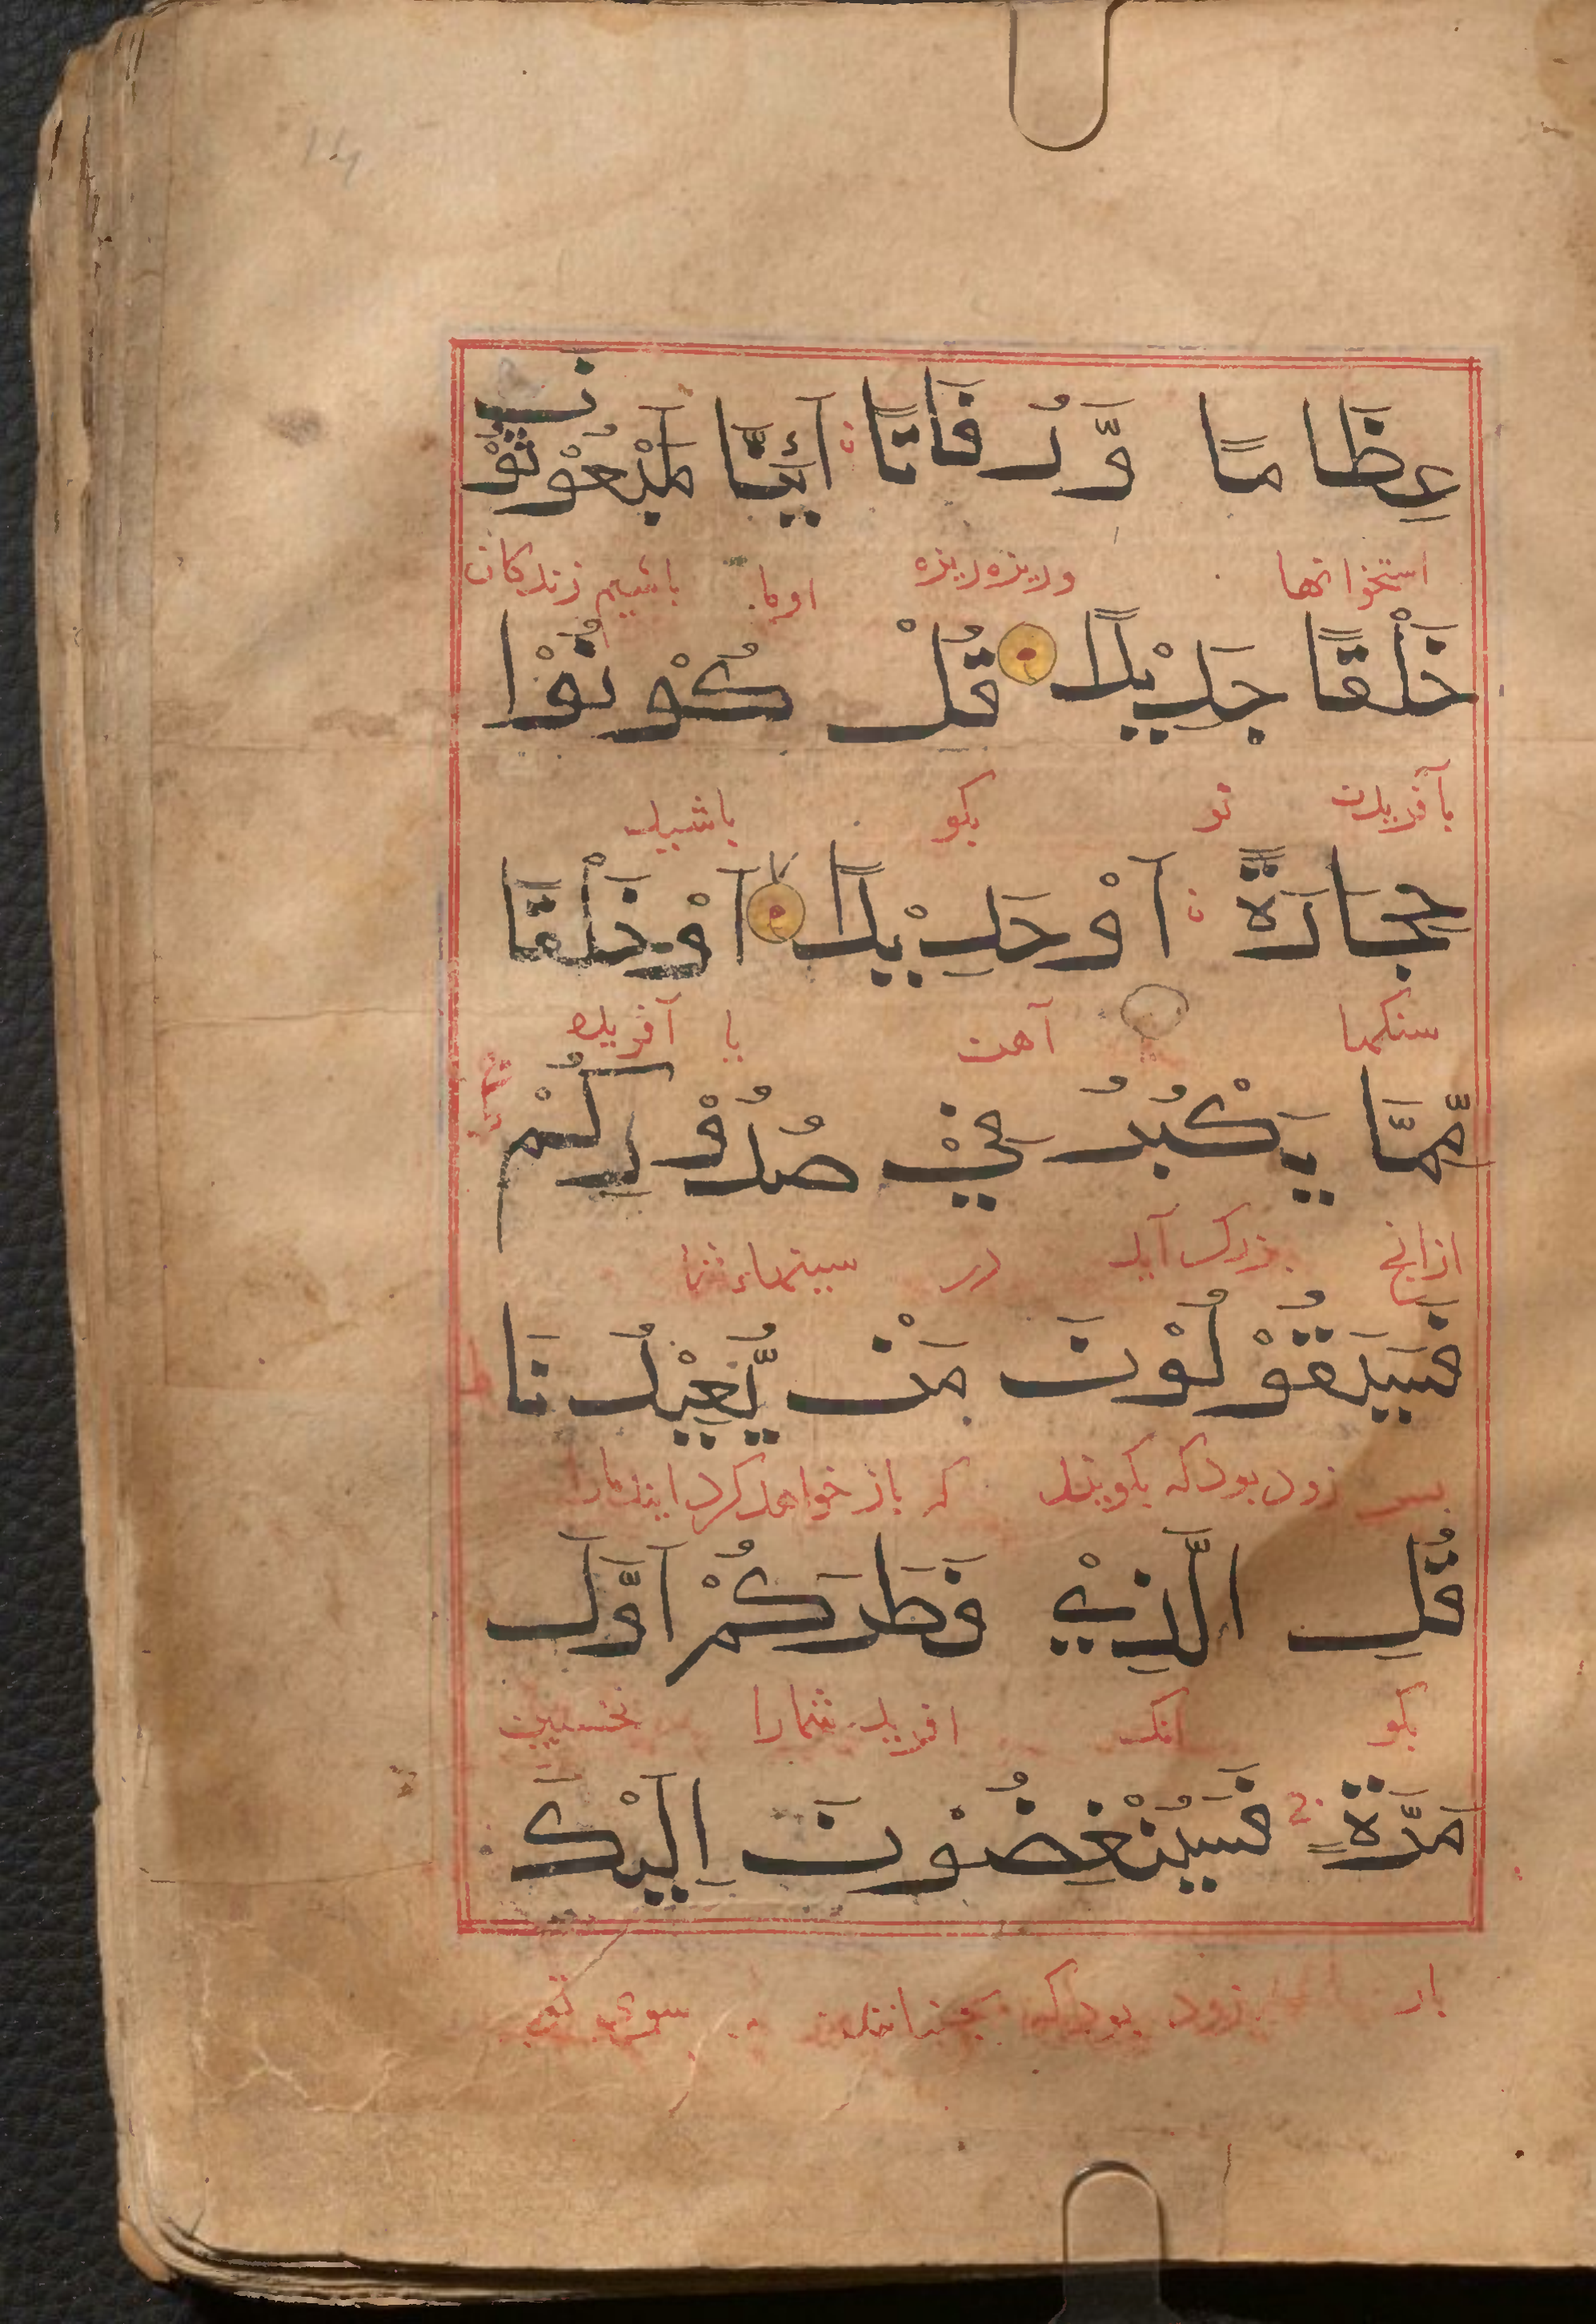 عِظَامًا وَّرُفَاتًا اَئِنَّا لَمَبْعُوْثُوْنَ
استخوانها وریزه ریزه اوما باشیم زندکان
خَلْقًا جَدِيْدًا قُلْ كُوْنُوْا
بآفریدن نو بکو باشید
حِجَارَةً اَوْ حَدِيْدًا اَوْ خَلْقًا
سنکها آهن یا آفریده
مِّمَّا يَكْبُرُ فِيْ صُدُوْرِكُمْ
ازانچ بزرک آید در سینهاء شما
فَسَيَقُوْلُوْنَ مَنْ يُّعِيْدُنَا
بس زود بود که بکویند که باز خواهد کرد اینک ما را
قُلِ الَّذِيْ فَطَرَكُمْ اَوَّلَ
بکو انک افرید شمارا نخستین
مَرَّةٍ فَسَيُنْغِضُوْنَ اِلَيْكَ
بار زود بود که بجنبانند سوی تو